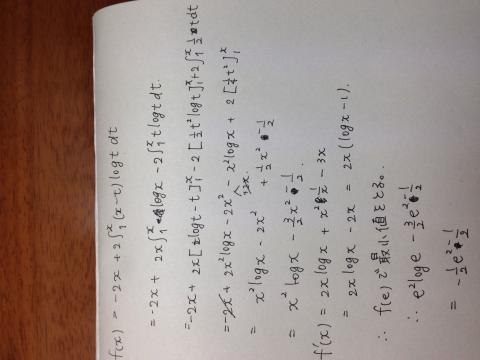 f(x) = -2x + 2∫₁ˣ(x-t)logt dt
= -2x + 2x∫₁ˣlogx - 2∫₁ˣ t logt dt
= -2x + 2x[tlogt - t]₁ˣ - 2[½t²logt]₁ˣ + 2∫₁ˣ ½t dt
= -2x + 2x²logx - 2x² - x²logx + 2[¼t²]ₓ₁
= x²logx - 2x² + ½x² - ½
= x²logx - 3/2x² - ½
f'(x) = 2xlogx + x²·1/x - 3x
= 2xlogx - 2x = 2x(logx-1).
∴ f(e)で最小値をとる。
∴ e²loge - 3/2e² - ½
= -½e² - ½